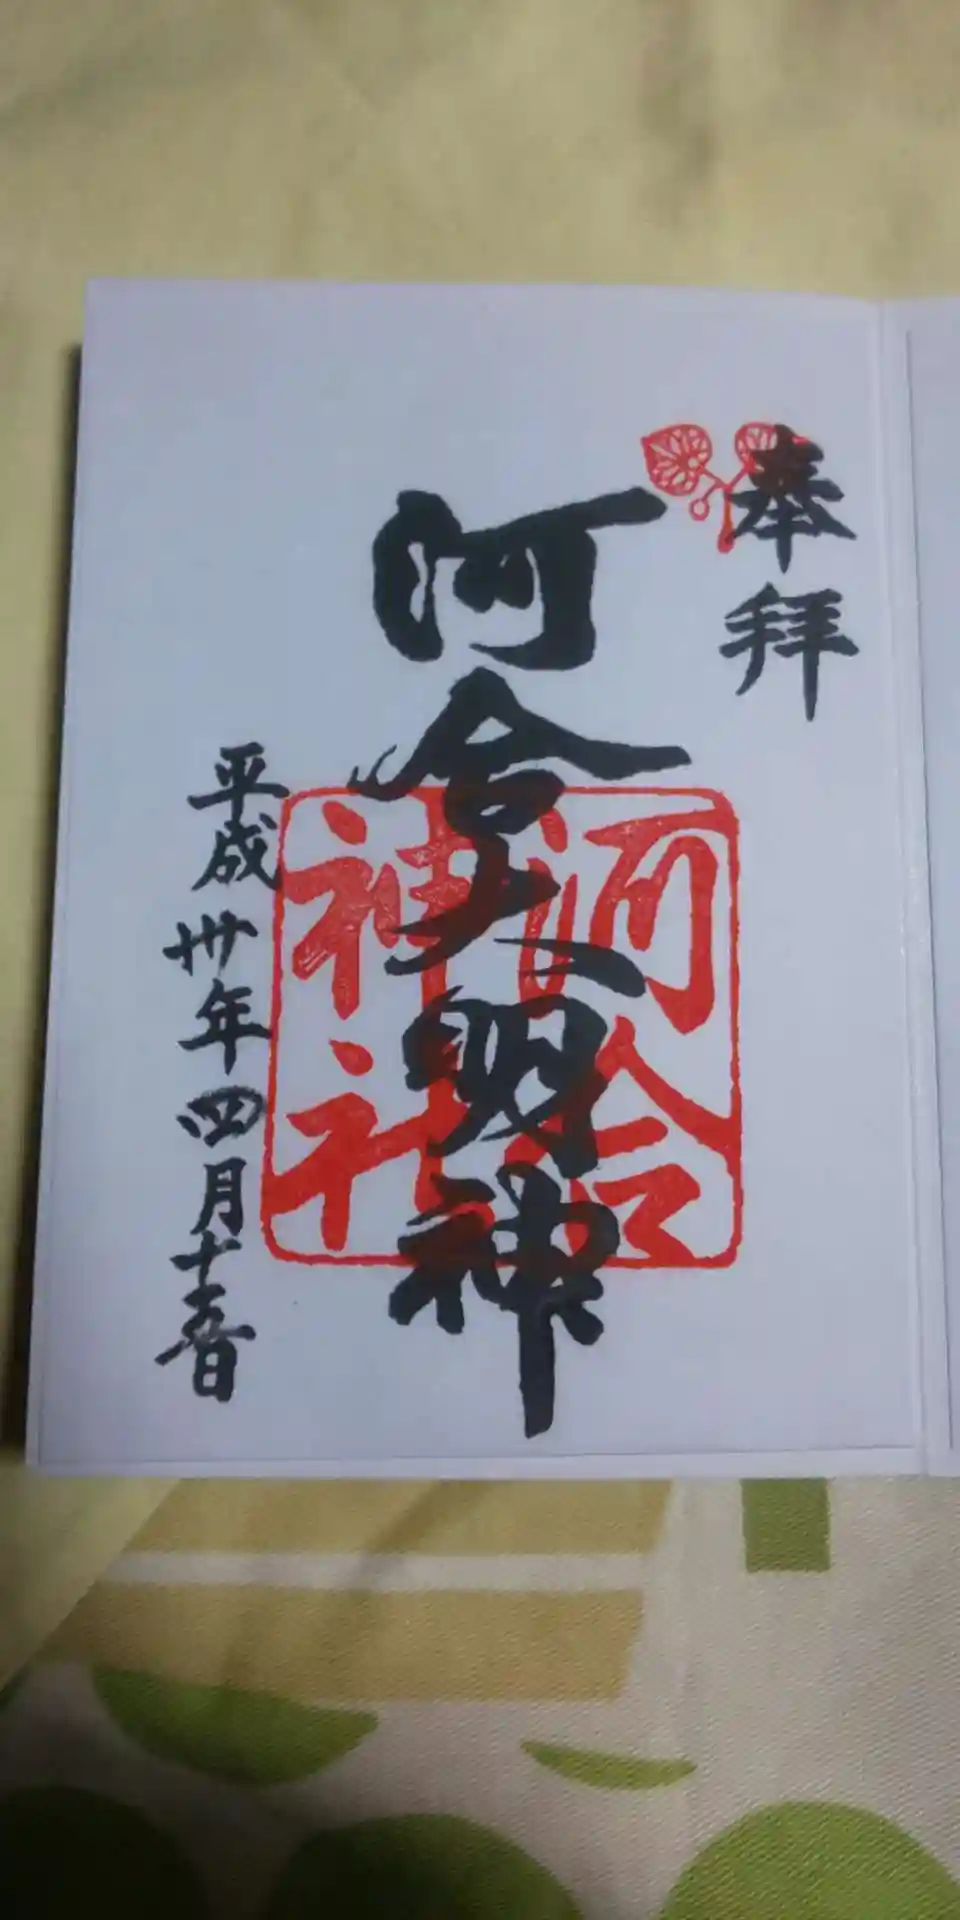 奉拝
河合大明神
河合
神社
平成卅年四月十五日